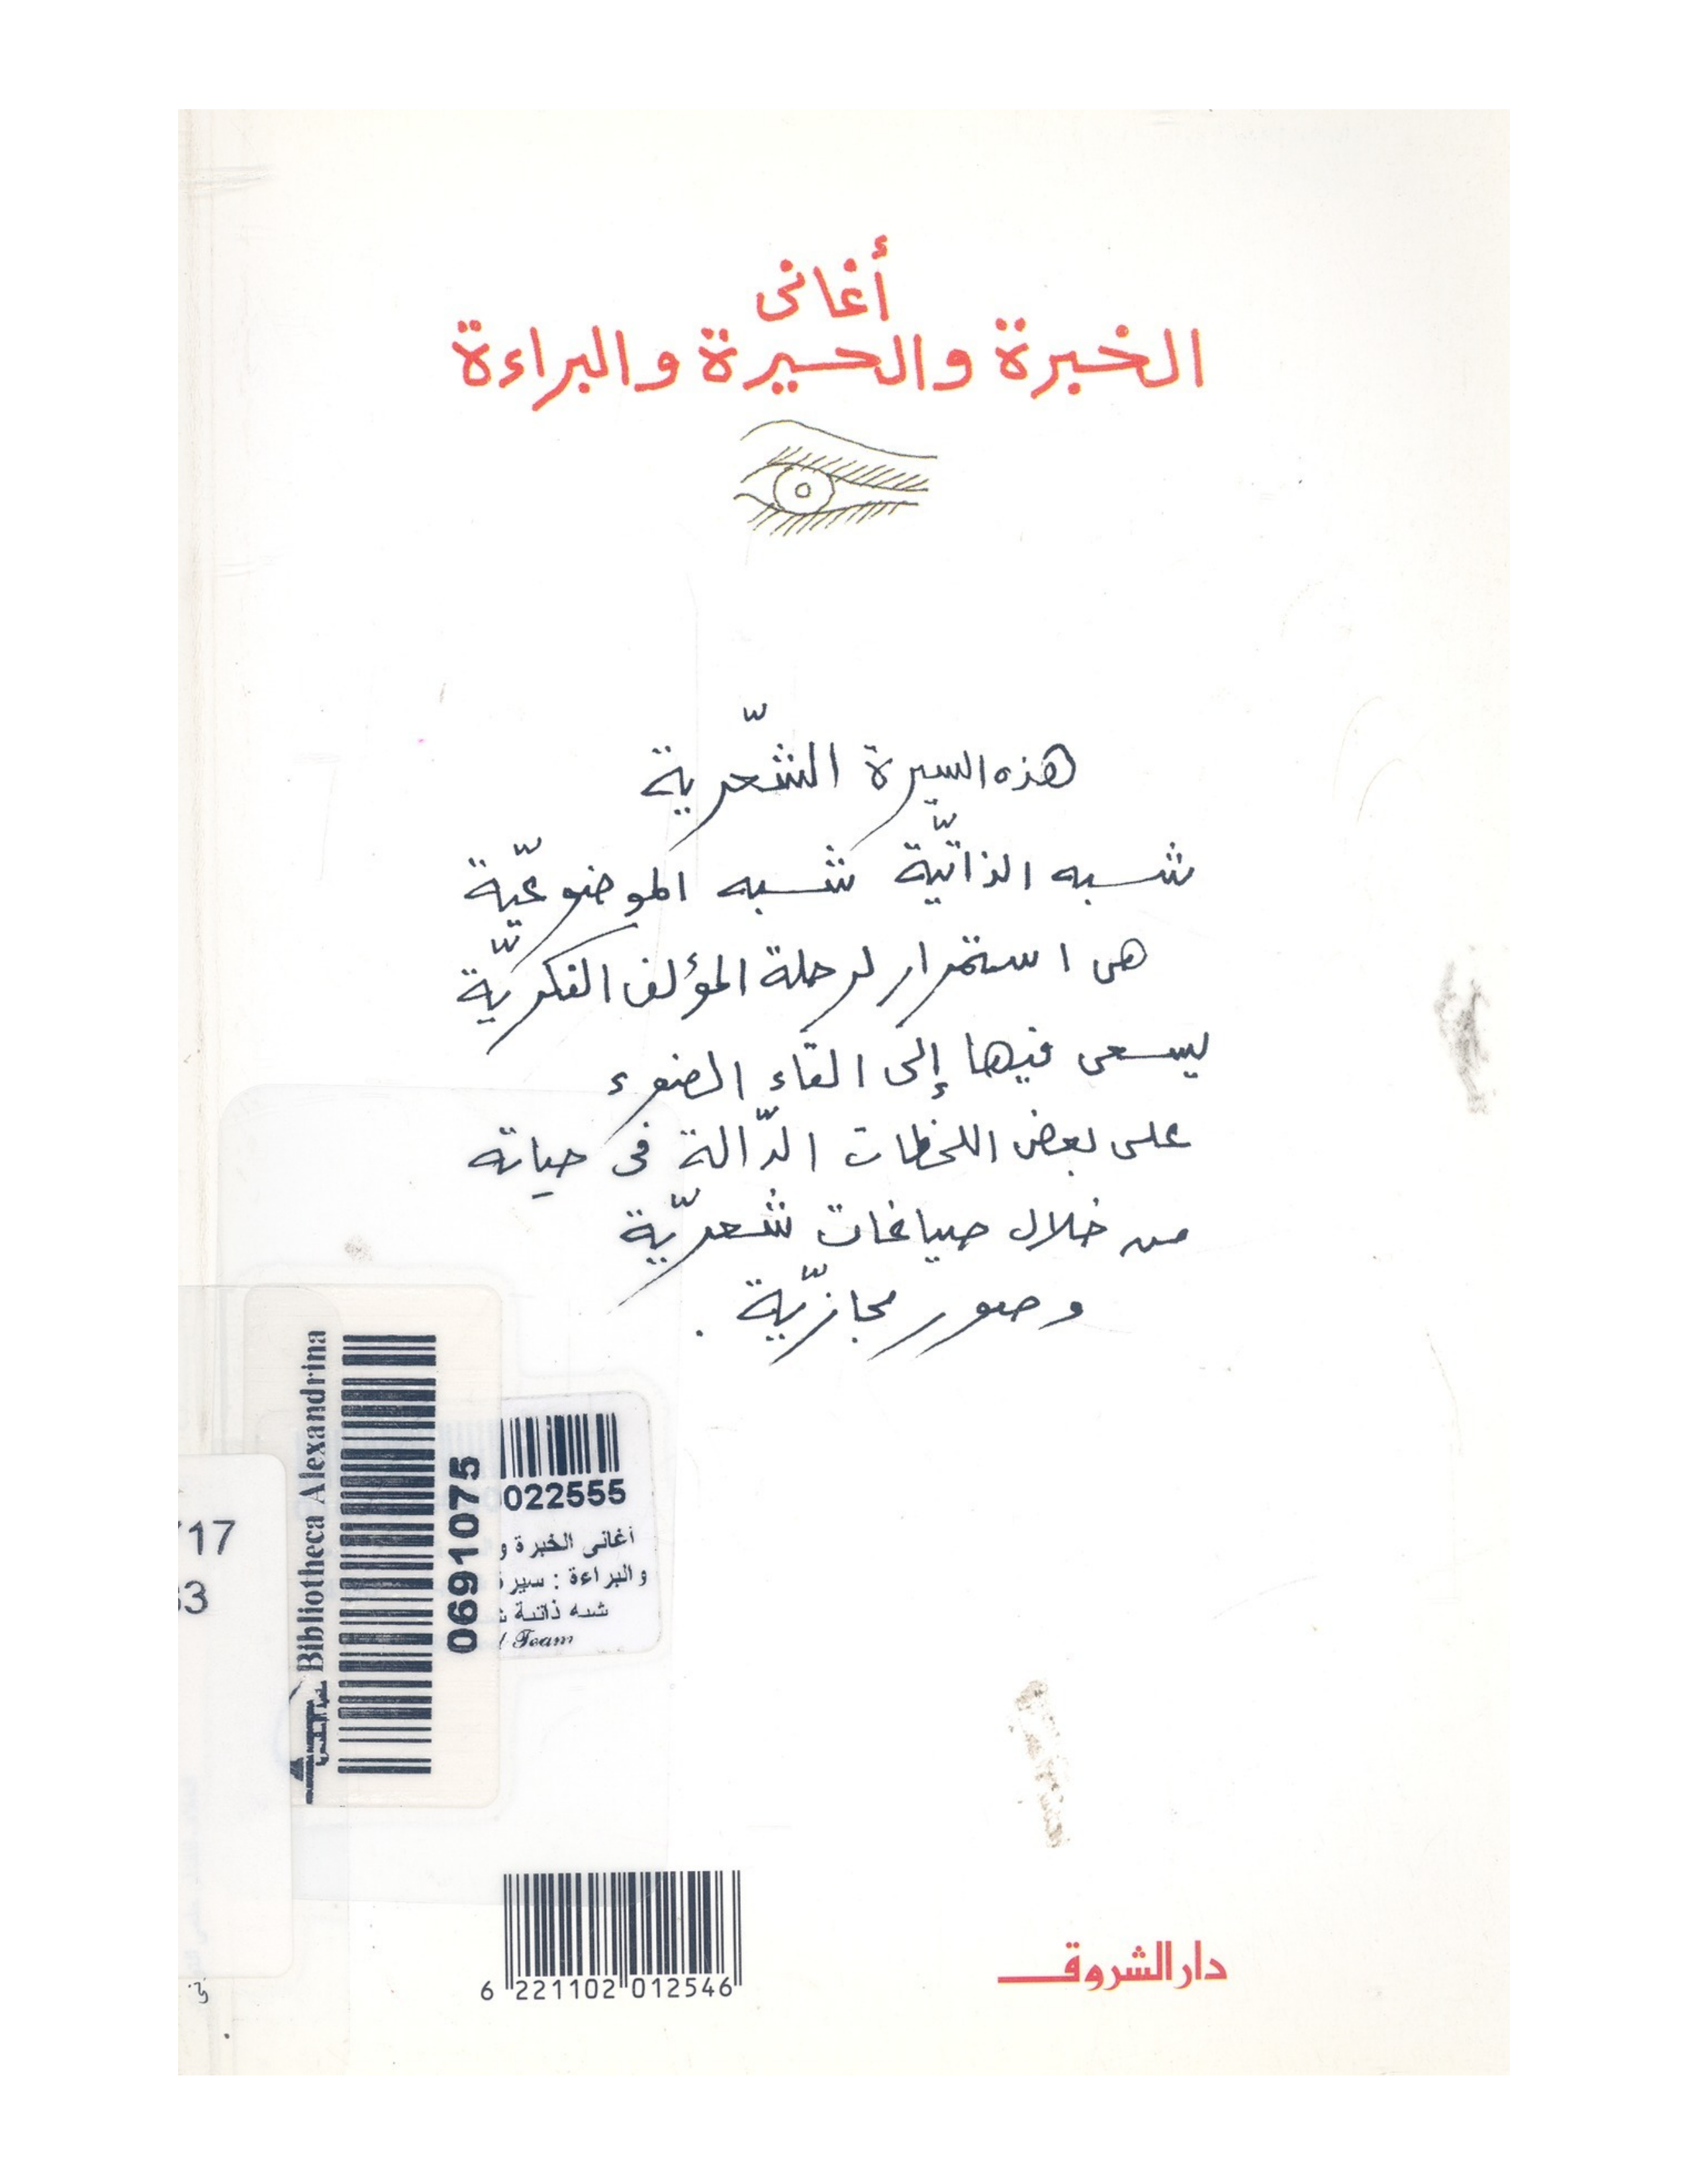 أغانى
الخبرة والحيرة والبراءة
هذه السيرة الشّعرية
شبه الذاتيّة شبه الموضوعيّة
هى استمرار لرحلة المؤلف الفكريّة
يسعى فيها إلى القاء الضوء
على بعض اللحظات الدّالة فى حياته
من خلال صياغات شعريّة
وصور مجازيّة .
Bibliotheca Alexandrina
0691075
022555
أغانى الخبرة و
والبراءة : سيرة
شبه ذاتية ش
Team
17
3
6 221102 012546
دار الشروق